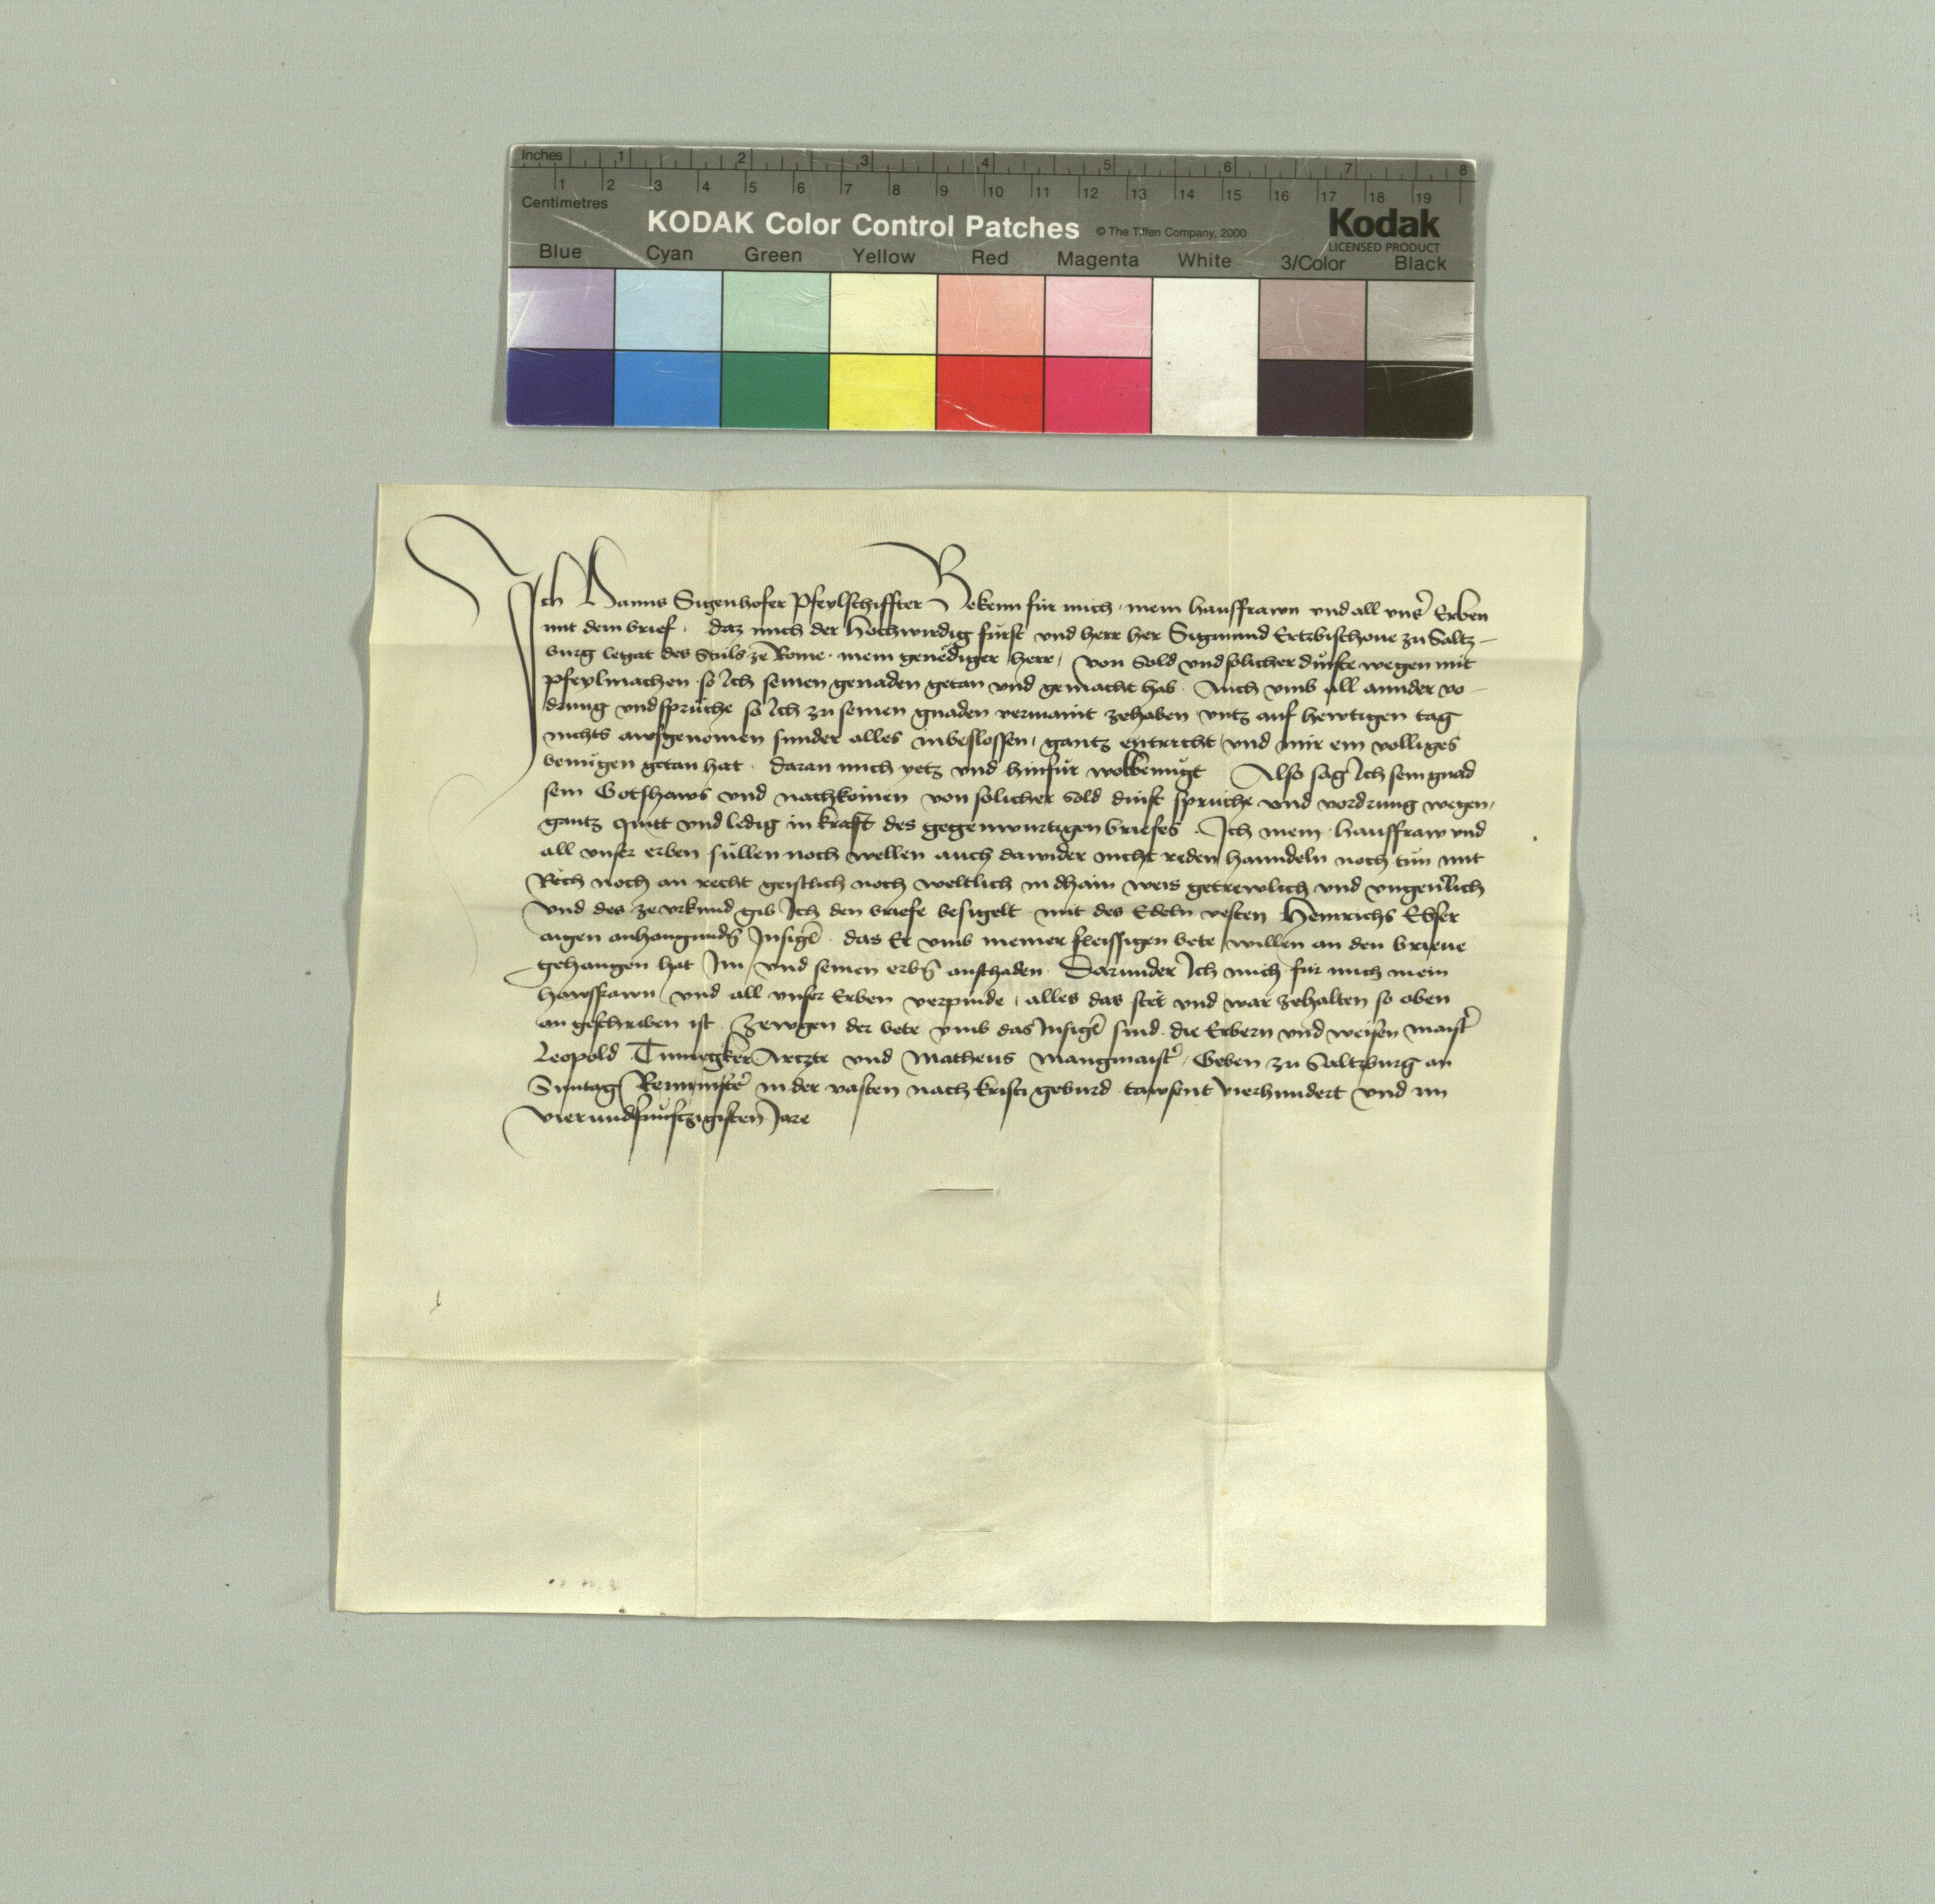 Inches 1 2 3 4 5 6 7 8
1 2 3 4 5 6 7 8 9 10 11 12 13 14 15 16 17 18 19
Centimetres
KODAK Color Control Patches © The Tiffen Company, 2000 Kodak
LICENSED PRODUCT
Blue Cyan Green Yellow Red Magenta White 3/Color Black
Ich Hanns Sigenhofer Pfeylschiffter Bekenn für mich mein hausffrawn vnd all vnsr̄ Erben
mit dem brief. daz mich der Hochwirdig fürst vnd herr her Sigmund Ertzbischoue zu Saltz-
burg legat des Stuls ze Rome. mein genediger herr, von Sold vnd solicher dinste wegen mit
pfeylmachen so Ich seinen genaden getan vnd gemacht hab. Auch vmb all annder vo-
drung vnd sprüche so Ich zu seinen gnaden vermaint zehaben vntz auf hewtigen tag
nichts awsgenomen sunder alles inbeslossen, gantz entricht vnd mir ein volligs
benügen getan hat. daran mich yetz vnd hinfür wolbenügt Also sag Ich sein gnad
sein Gotshaws vnd nachkomen von solicher Sold dinst sprüche vnd vordrung wegen,
gantz quitt vnd ledig in kraft des gegenwurtigen briefes. Ich mein hausffraw vnd
all vnser erben süllen noch wellen auch dawider nicht reden hanndeln noch tün mit
Rech noch an recht geistlich noch weltlich in dhain weis getrewlich vnd vngeuerlich
vnd des ze vrkund gib Ich den briefe besigelt mit des Edeln vesten Heinrichs Ebser
aigen anhangunden Insigel. das Er vmb meiner fleissigen bete willen an den brieue
gehangen hat Im vnd seinen erbn̄ anschaden. Darunder Ich mich für mich mein
hawsfrawn vnd all vnser Erben verpinde, alles das stet vnd war zehalten so oben
an geschriben ist. Zewgen der bete vmb das Insigel sind. die Erbern vnd weisen maistr̄
Leopold Arczte vnd Matheus Mangmaistr̄, Geben zu Saltzburg an
Suntag Reminister̄ in der vasten nach kristi geburd tawsent vierhundert vnd im
vierundfünftzigisten Jare